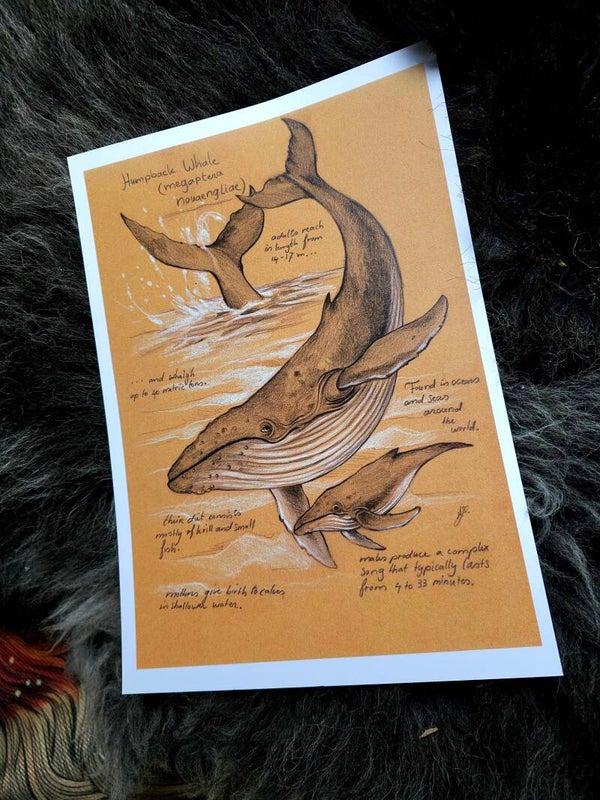 Humpback Whale
(megaptera
novaengliae)
adults reach
in length from
14-17 m...
... and whaigh
up to 40 metric tons.
Found in oceans
and seas
around
the
world.
their diet consists
mostly of krill and small
fish.
males produce a complex
song that typically lasts
from 4 to 33 minutes.
mothers give birth to calves
in shallower water.